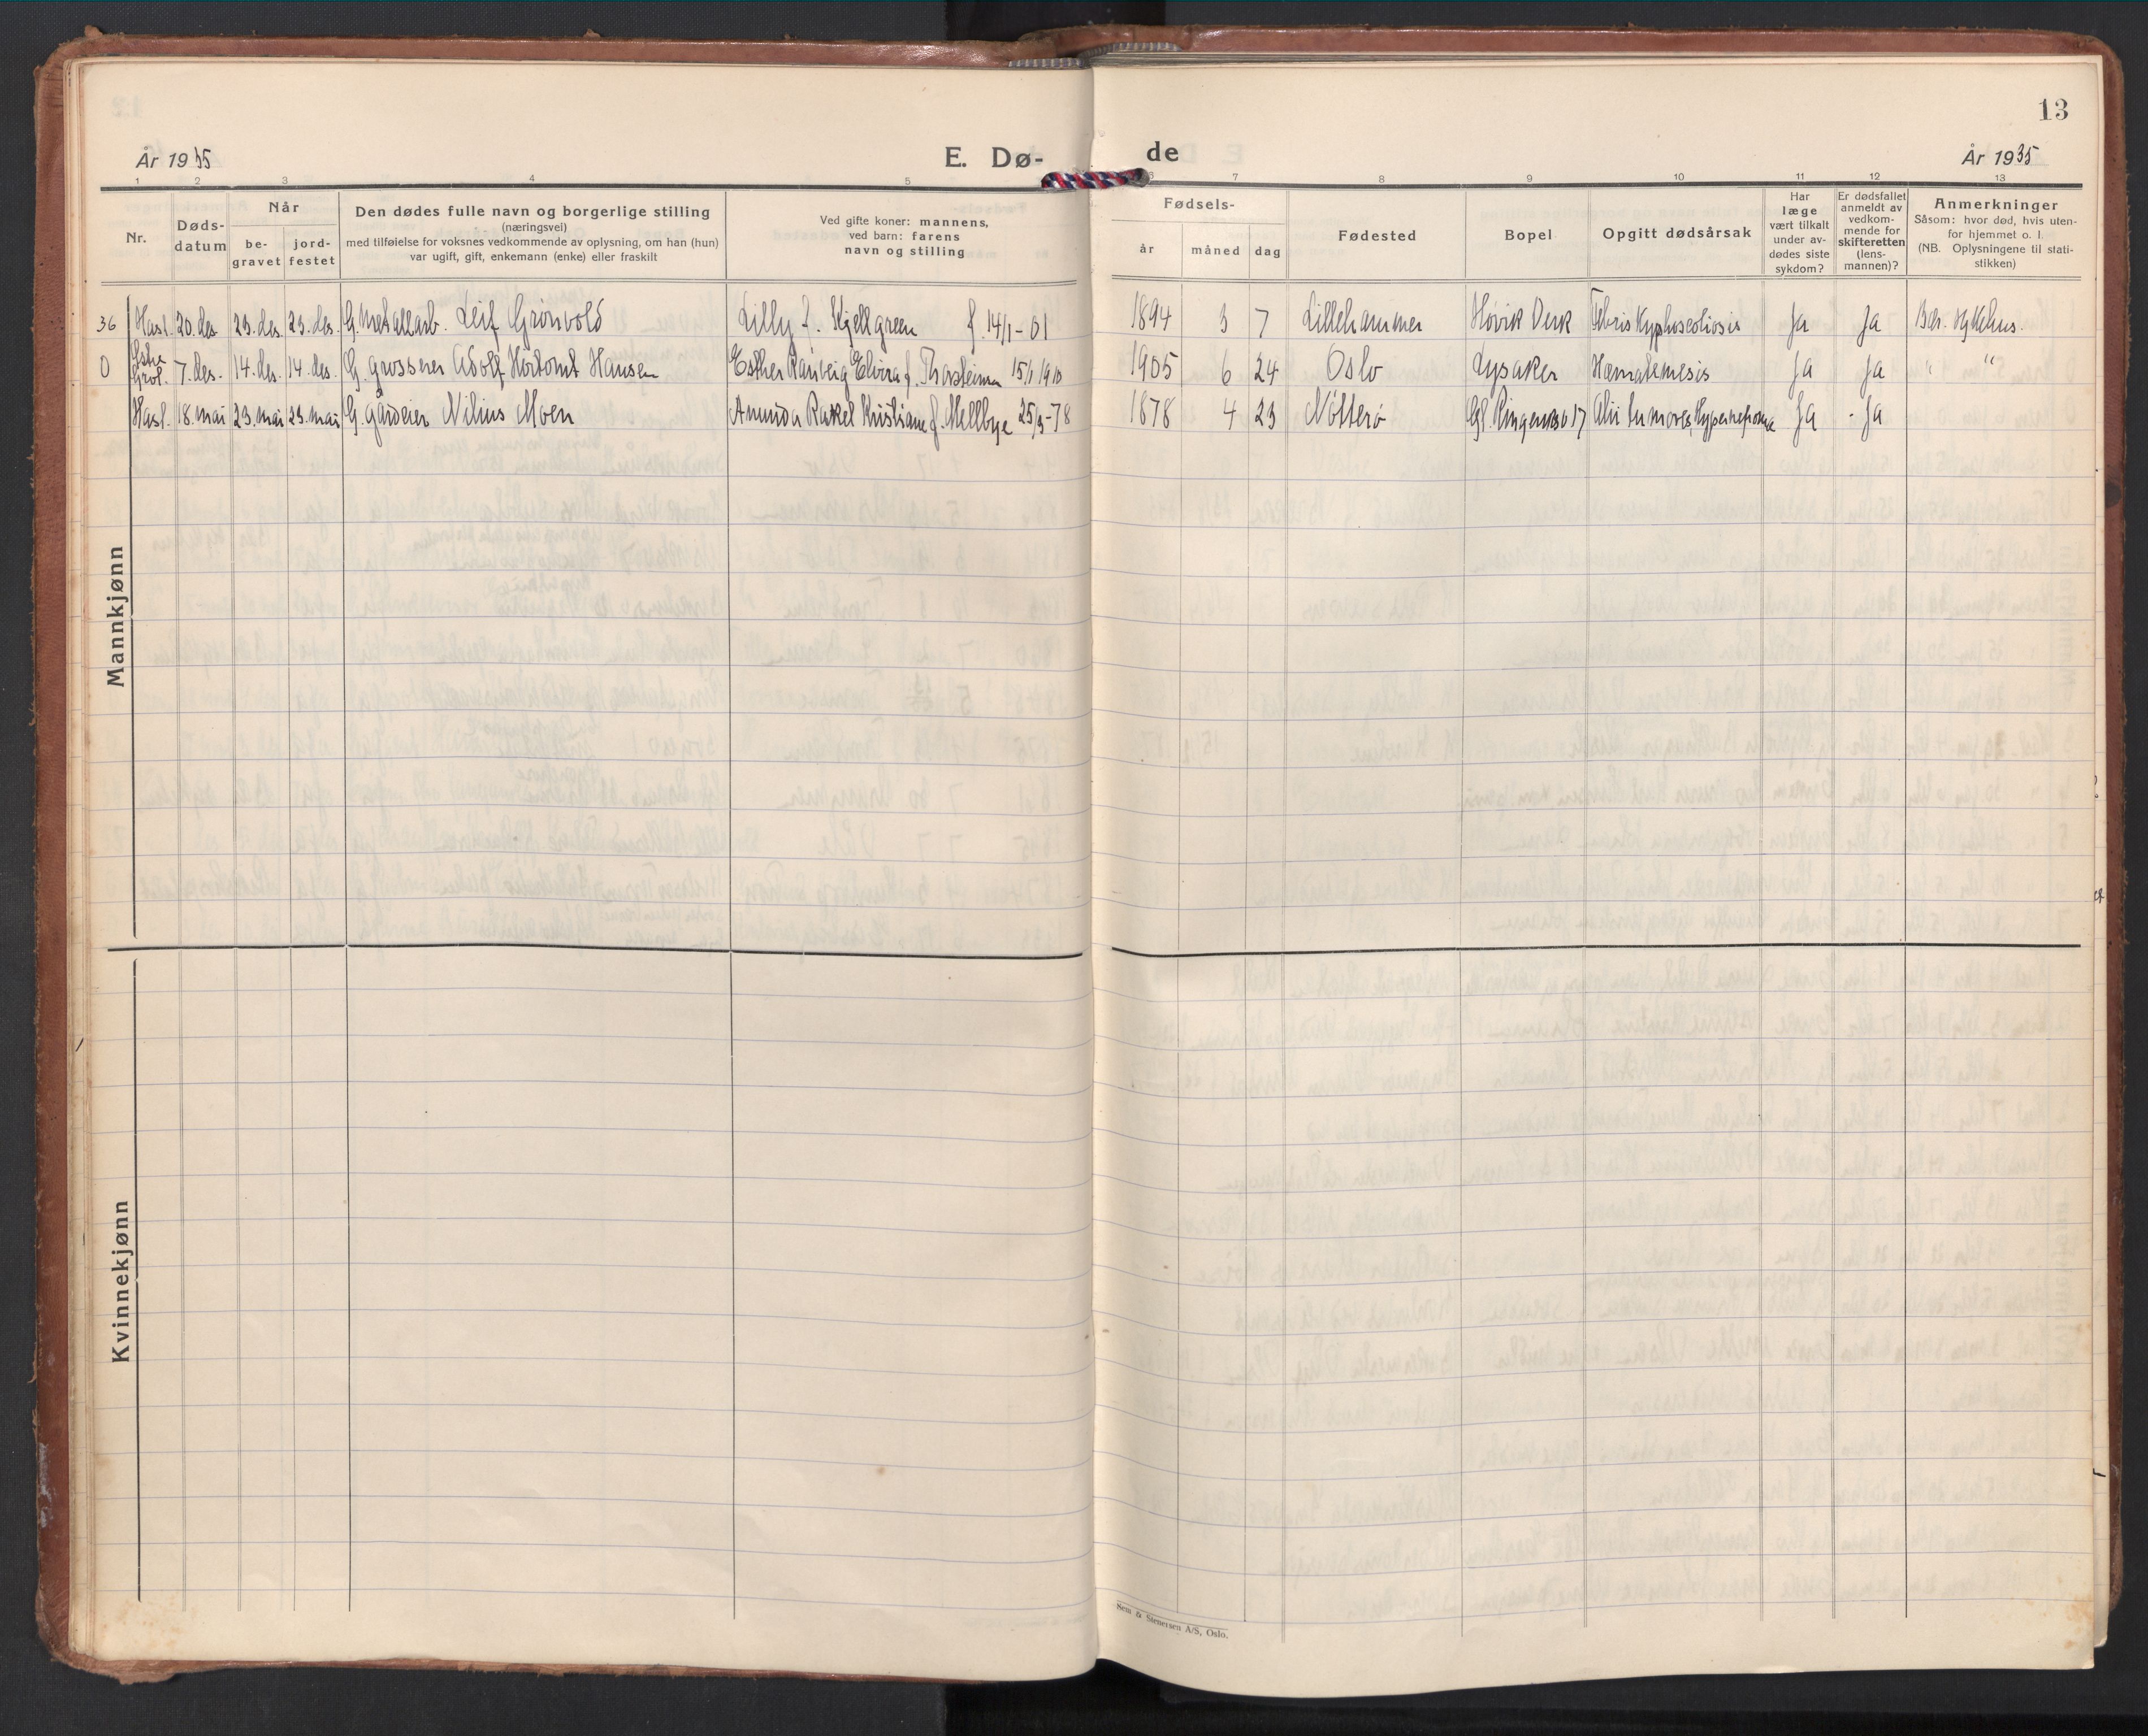 13
År 1935 E. Dø- de År 1935
1 2 3 4 5 6 7 8 9 10 11 12 13
Nr.
Døds-
datum
Når
be-
gravet
jord-
festet
Den dødes fulle navn og borgerlige stilling
(næringsvei)
med tilføielse for voksnes vedkommende av oplysning, om han (hun)
var ugift, gift, enkemann (enke) eller fraskilt
Ved gifte koner: mannens,
ved barn: farens
navn og stilling
Fødsels-
år måned dag
Fødested
Bopel
Opgitt dødsårsak
Har
læge
vært tilkalt
under av-
dødes siste
sykdom?
Er dødsfallet
anmeldt av
vedkom-
mende for
skifteretten
(lens-
mannen)?
Anmerkninger
Såsom: hvor død, hvis uten-
for hjemmet o. l.
(NB. Oplysningene til stati-
stikken)
Mannkjønn
36 Hasl. 20. des. 23. des. 23. des. G. metallarb. Leif Grønvold Lilly f. Kjellgren f. 14/1-01 1894 3 7 Lillehammer Høvik Verk Febris Kyphoscoliosis Ja Ja Bær. sykehus.
0 Østre Grøl. 7. des. 14. des. 14. des. G. grosserer Adolf Hortomt Hansen Esther Ranveig Elvira f. Thorsteinsen 15/1 1910 1905 6 24 Oslo Lysaker Hæmatemesis Ja Ja " "
Hasl. 18. mai 23. mai 23. mai G. gårdeier Nilius Moen Amunda Rakel Kristiane f. Mellbye 25/3-78 1878 4 23 Nøtterø Gl. Ringeriksv 17 Alii tumores, Hypernefrom Ja - Ja
Kvinnekjønn
Sem & Stenersen A/S, Oslo.